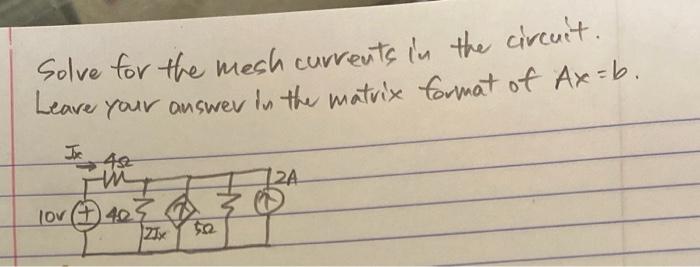 Solve for the mesh currents in the circuit.
Leave your answer in the matrix format of Ax=b.
Ix
4Ω
2A
10V
4Ω
2Ix
5Ω